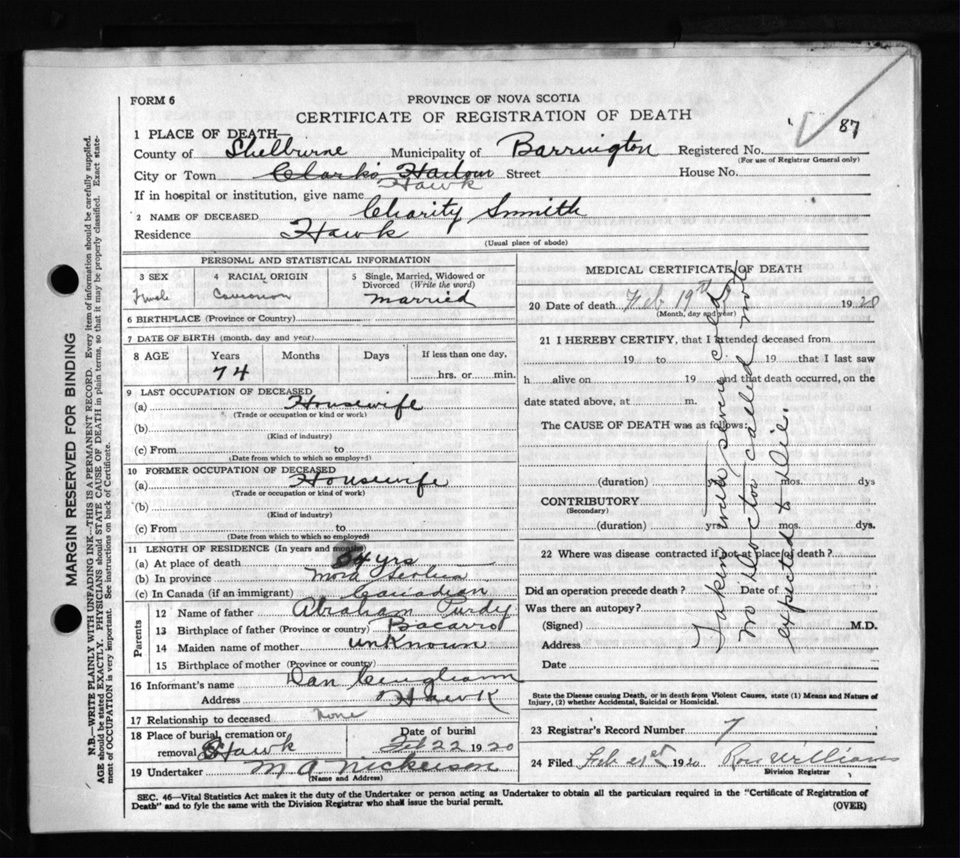 FORM 6
PROVINCE OF NOVA SCOTIA
CERTIFICATE OF REGISTRATION OF DEATH
87
1 PLACE OF DEATH—
County of Shelburne Municipality of Barrington Registered No.
(For use of Registrar General only)
City or Town Clarks Harbour Street House No.
Hawk
If in hospital or institution, give name
2 NAME OF DECEASED Charity Smith
Residence Hawk
(Usual place of abode)
MARGIN RESERVED FOR BINDING
N.B.—WRITE PLAINLY WITH UNFADING INK—THIS IS A PERMANENT RECORD. Every item of information should be carefully supplied.
AGE should be stated EXACTLY. PHYSICIANS should STATE CAUSE OF DEATH in plain terms, so that it may be properly classified. Exact state-
ment of OCCUPATION is very important. See instructions on back of Certificate.
PERSONAL AND STATISTICAL INFORMATION
3 SEX
4 RACIAL ORIGIN
5 Single, Married, Widowed or
Divorced (Write the word)
Female
Married
6 BIRTHPLACE (Province or Country)
7 DATE OF BIRTH (month, day and year)
8 AGE Years Months Days If less than one day,
74 hrs. or min.
9 LAST OCCUPATION OF DECEASED
(a) Housewife
(Trade or occupation or kind of work)
(b)
(Kind of industry)
(c) From to
(Date from which to which so employed)
10 FORMER OCCUPATION OF DECEASED
(a) Housewife
(Trade or occupation or kind of work)
(b)
(Kind of industry)
(c) From to
(Date from which to which so employed)
11 LENGTH OF RESIDENCE (In years and months)
(a) At place of death yrs
(b) In province Nova Scotia
(c) In Canada (if an immigrant) Canadian
Parents
12 Name of father Abraham Purdy
13 Birthplace of father (Province or country) Bacarro
14 Maiden name of mother unknown
15 Birthplace of mother (Province or country)
16 Informant's name Dan
Address Hawk
17 Relationship to deceased none
18 Place of burial, cremation or
removal Hawk
Date of burial
Feb 22 1920
19 Undertaker M A Nickerson
(Name and Address)
MEDICAL CERTIFICATE OF DEATH
20 Date of death Feb 19th 1920
(Month, day and year)
21 I HEREBY CERTIFY, that I attended deceased from
19 to 19 that I last saw
h alive on 19 and that death occurred, on the
date stated above, at m.
The CAUSE OF DEATH was as follows:
(duration) yrs. mos. dys
CONTRIBUTORY
(Secondary)
(duration) yrs. mos. dys.
22 Where was disease contracted if not at place of death?
Did an operation precede death? Date of
Was there an autopsy?
(Signed) M.D.
Address
Date
Taken with severe cold
no doctor called not
expected to die.
State the Disease causing Death, or in death from Violent Causes, state (1) Means and Nature of
Injury, (2) whether Accidental, Suicidal or Homicidal.
23 Registrar's Record Number 7
24 Filed Feb 1920 Ross Williams
Division Registrar
SEC. 46—Vital Statistics Act makes it the duty of the Undertaker or person acting as Undertaker to obtain all the particulars required in the "Certificate of Registration of
Death" and to fyle the same with the Division Registrar who shall issue the burial permit.
(OVER)